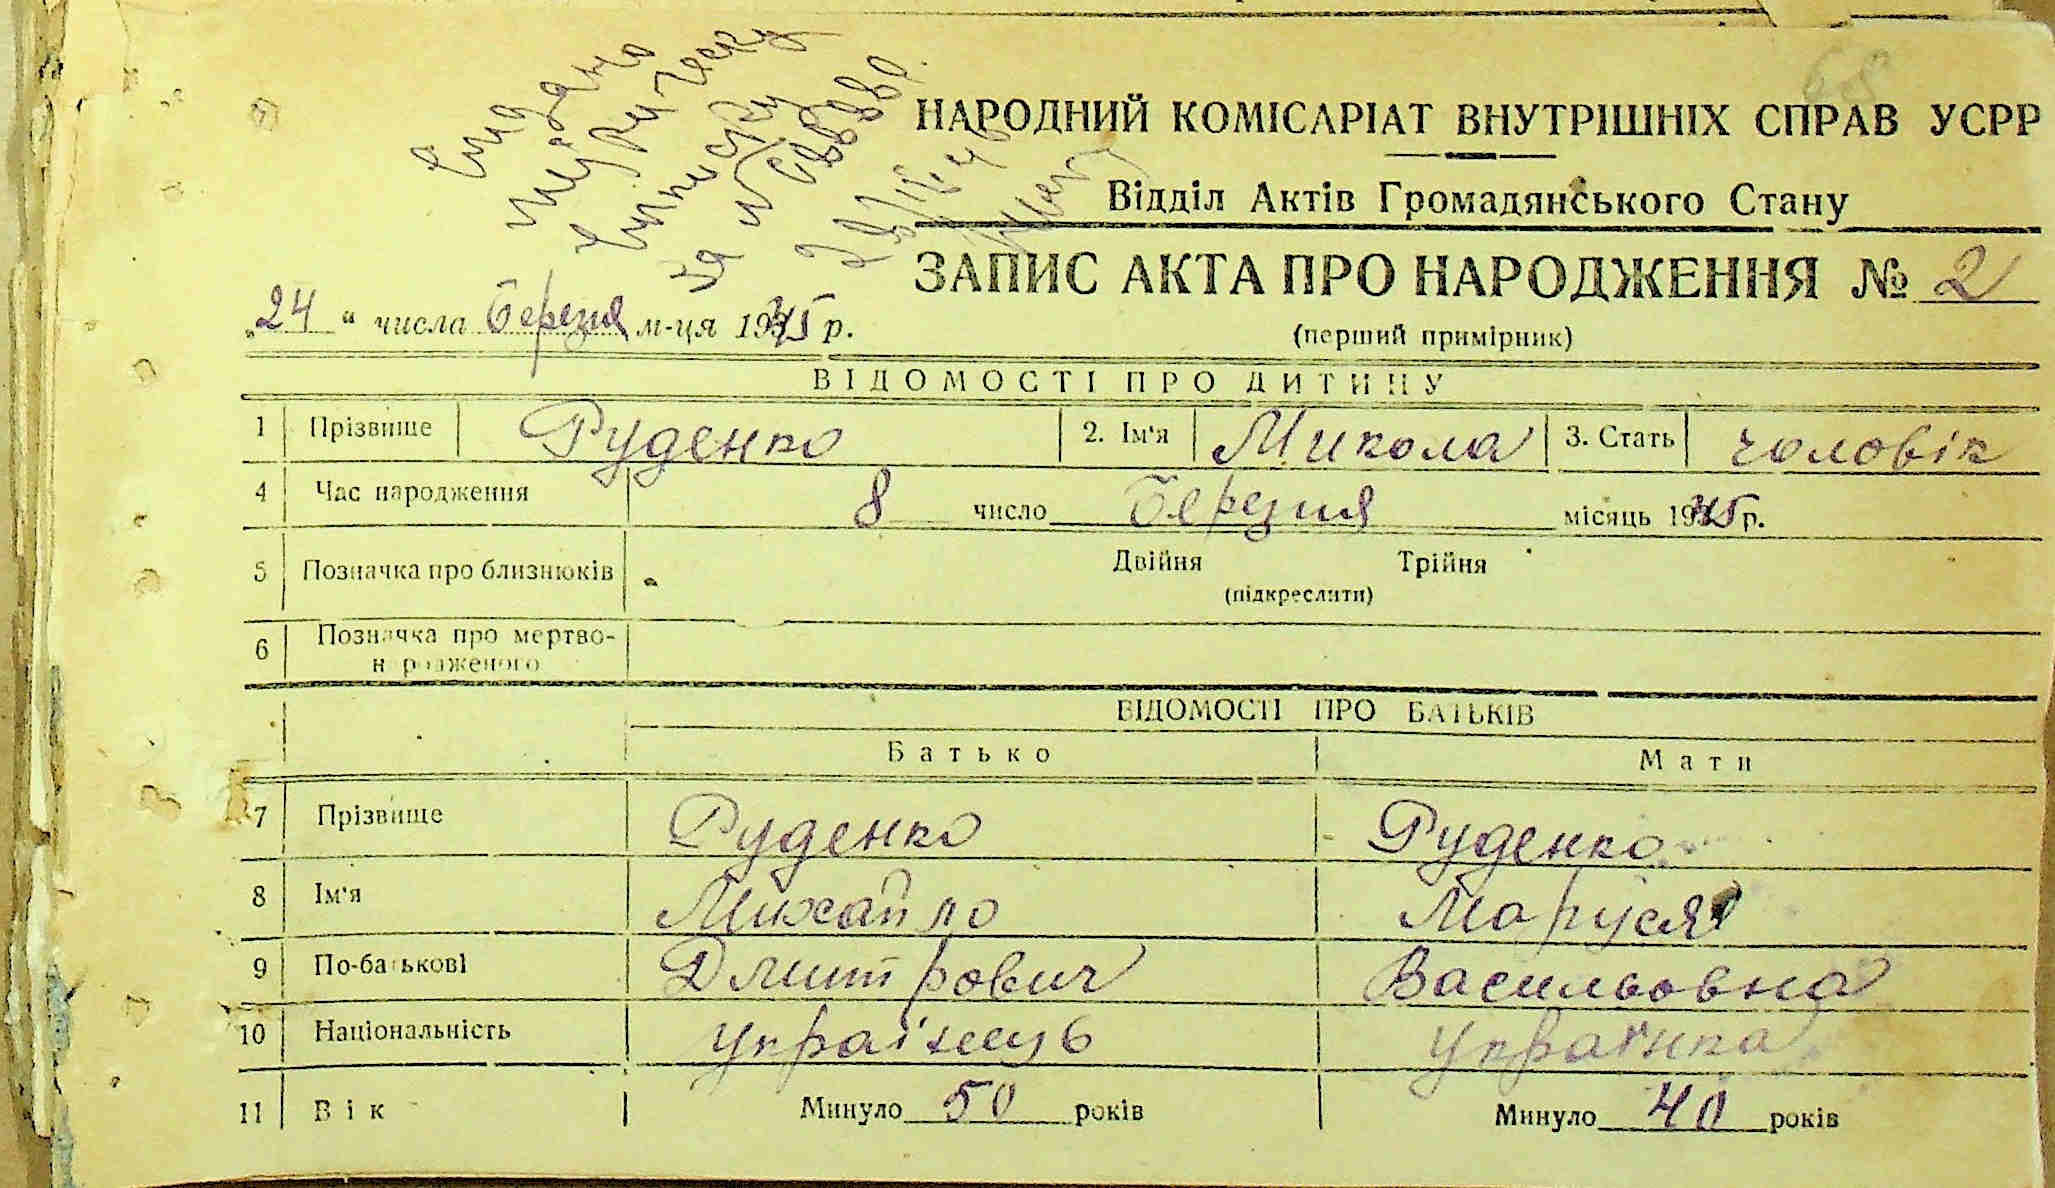 68
Видано
НАРОДНИЙ КОМІСАРІАТ ВНУТРІШНІХ СПРАВ УСРР
Відділ Актів Громадянського Стану
ЗАПИС АКТА ПРО НАРОДЖЕННЯ № 2
„24“ числа Березня м-ця 1945 р.
(перший примірник)
ВІДОМОСТІ ПРО ДИТИНУ
1 Прізвище Руденко 2. Ім'я Микола 3. Стать чоловік
4 Час народження 8 число Березня місяць 1945 р.
5 Позначка про близнюків Двійня Трійня
(підкреслити)
6 Позначка про мертво-
н родженого
ВІДОМОСТІ ПРО БАТЬКІВ
Батько Мати
7 Прізвище Руденко Руденко
8 Ім'я Михайло Маруся
9 По-батькові Дмитрович Васильовна
10 Національність Українець Українка
11 Вік Минуло 50 років Минуло 40 років